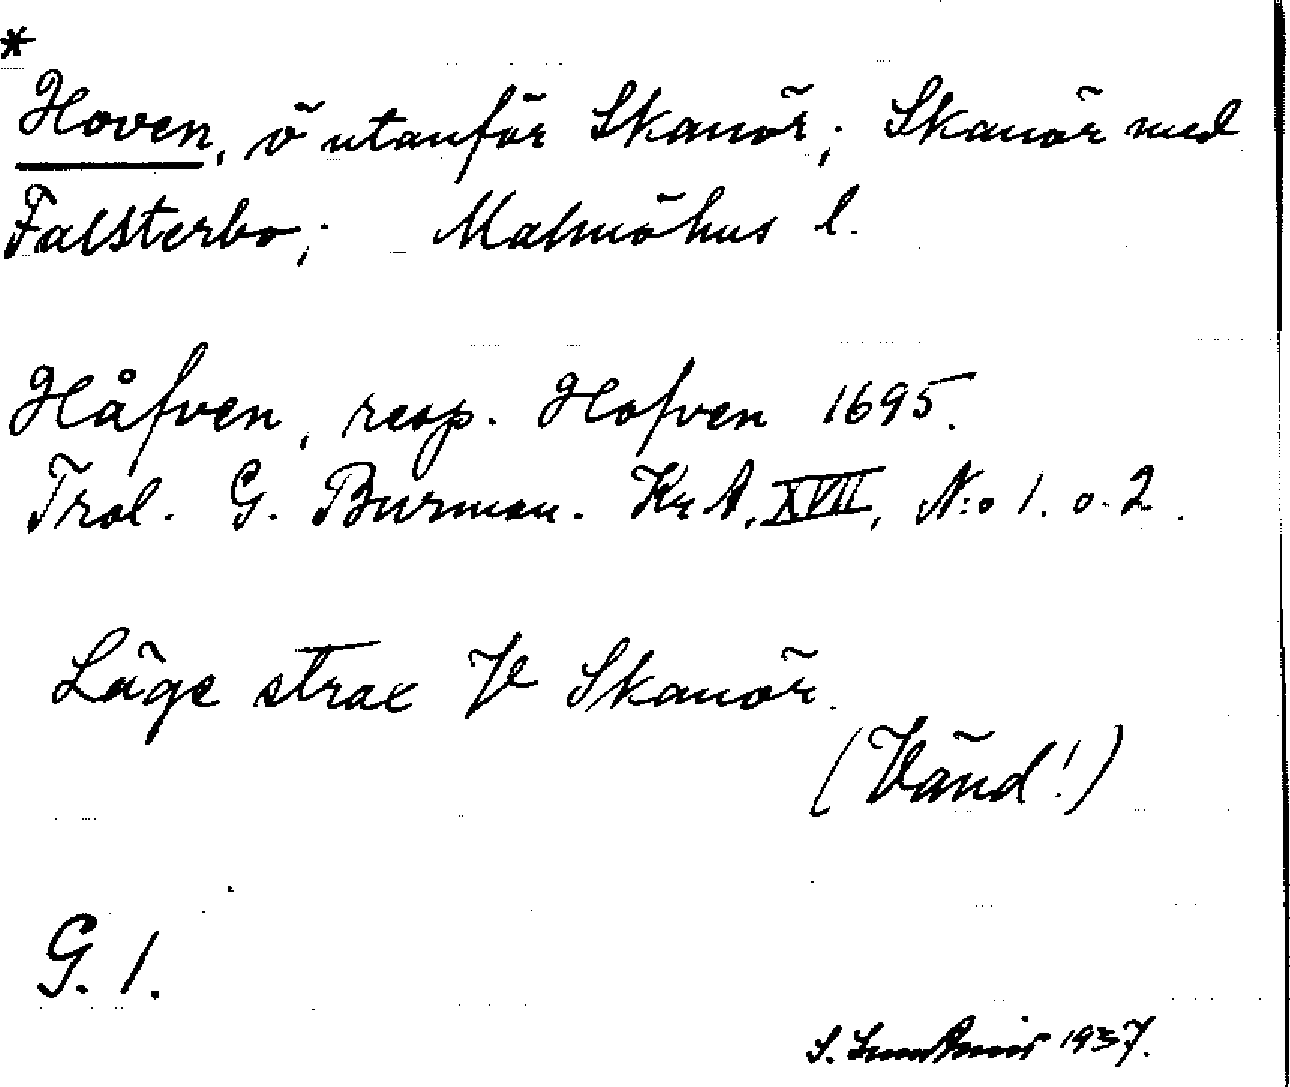 *
Hoven, ö utanför Skanör; Skanör med
Falsterbo; Malmöhus l.
Håfven, resp. Hofven 1695.
Trol. G. Burman. Kr A. XVII, N:o 1. o. 2.
Läge strax V Skanör.
(Vänd!)
G. 1.
S. 1937.